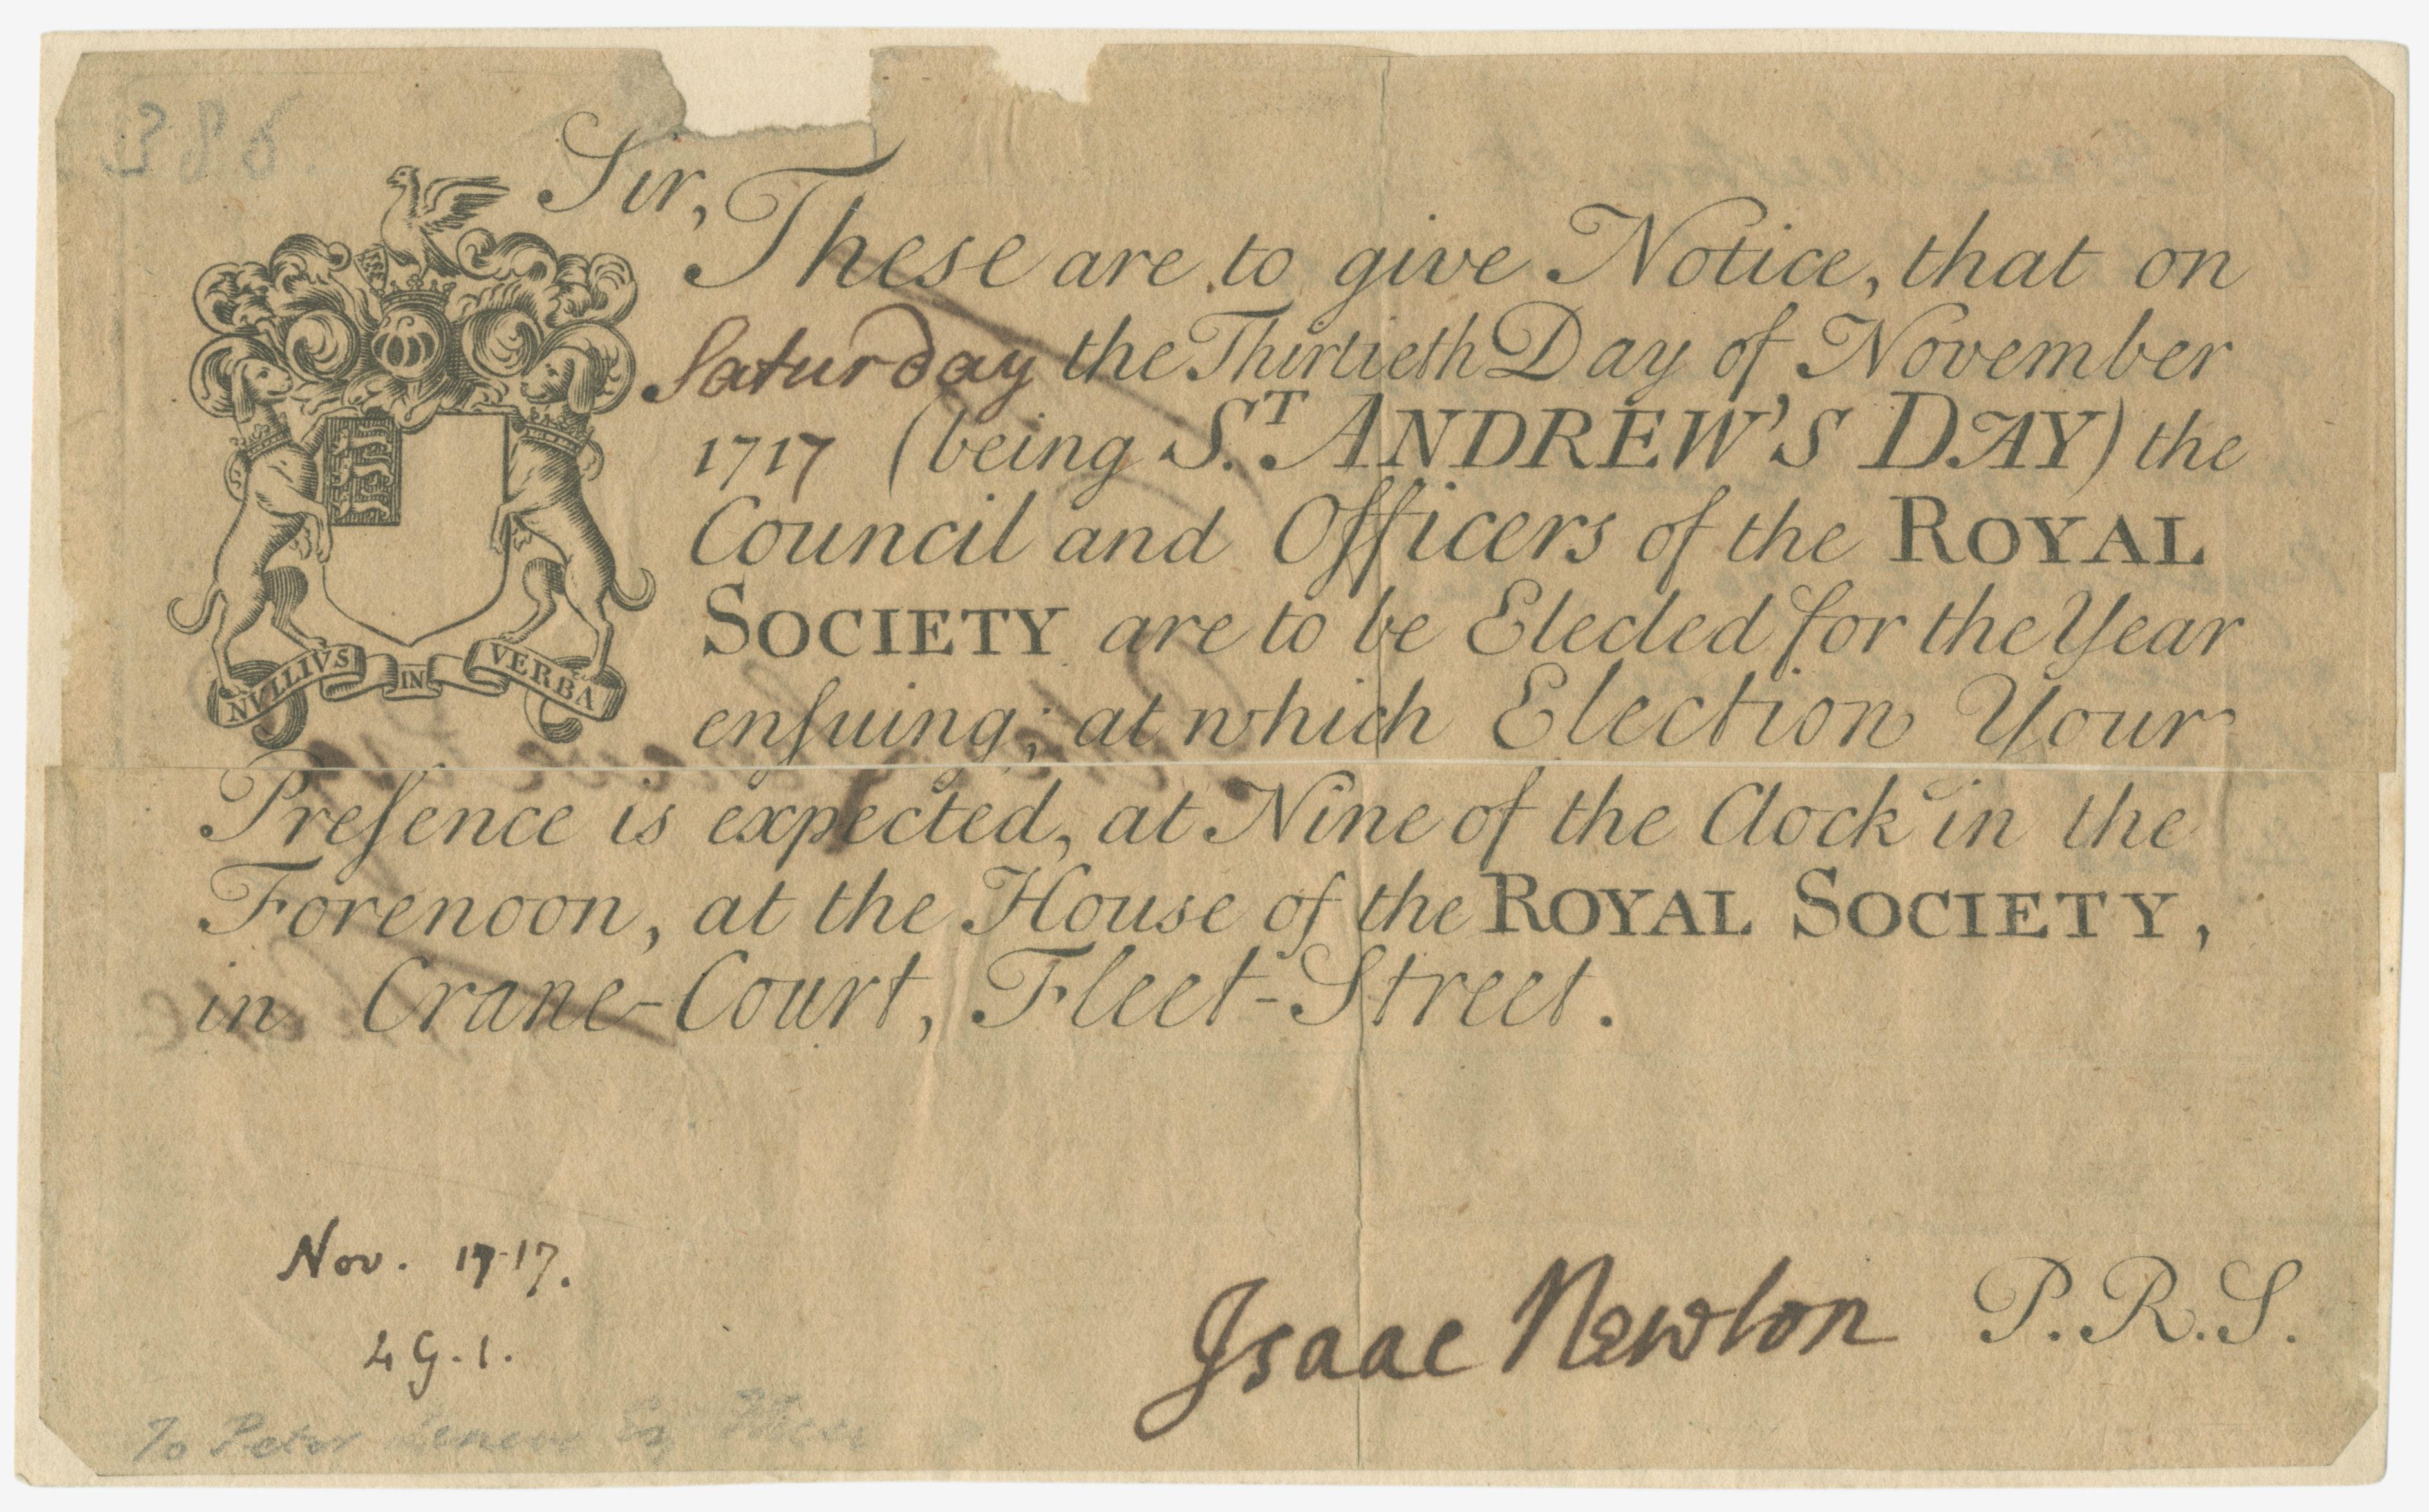 Sir,
These are to give Notice, that on
Saturday the Thirtieth Day of November
1717 (being S.T ANDREW'S DAY) the
Council and Officers of the ROYAL
SOCIETY are to be Elected for the Year
enſuing; at which Election Your
Preſence is expected, at Nine of the Clock in the
Forenoon, at the House of the ROYAL SOCIETY,
in Crane-Court, Fleet-Street.
NVLLIVS IN VERBA
Nov. 1717.
4 G. 1.
Isaac Newton P.R.S.
To Peter